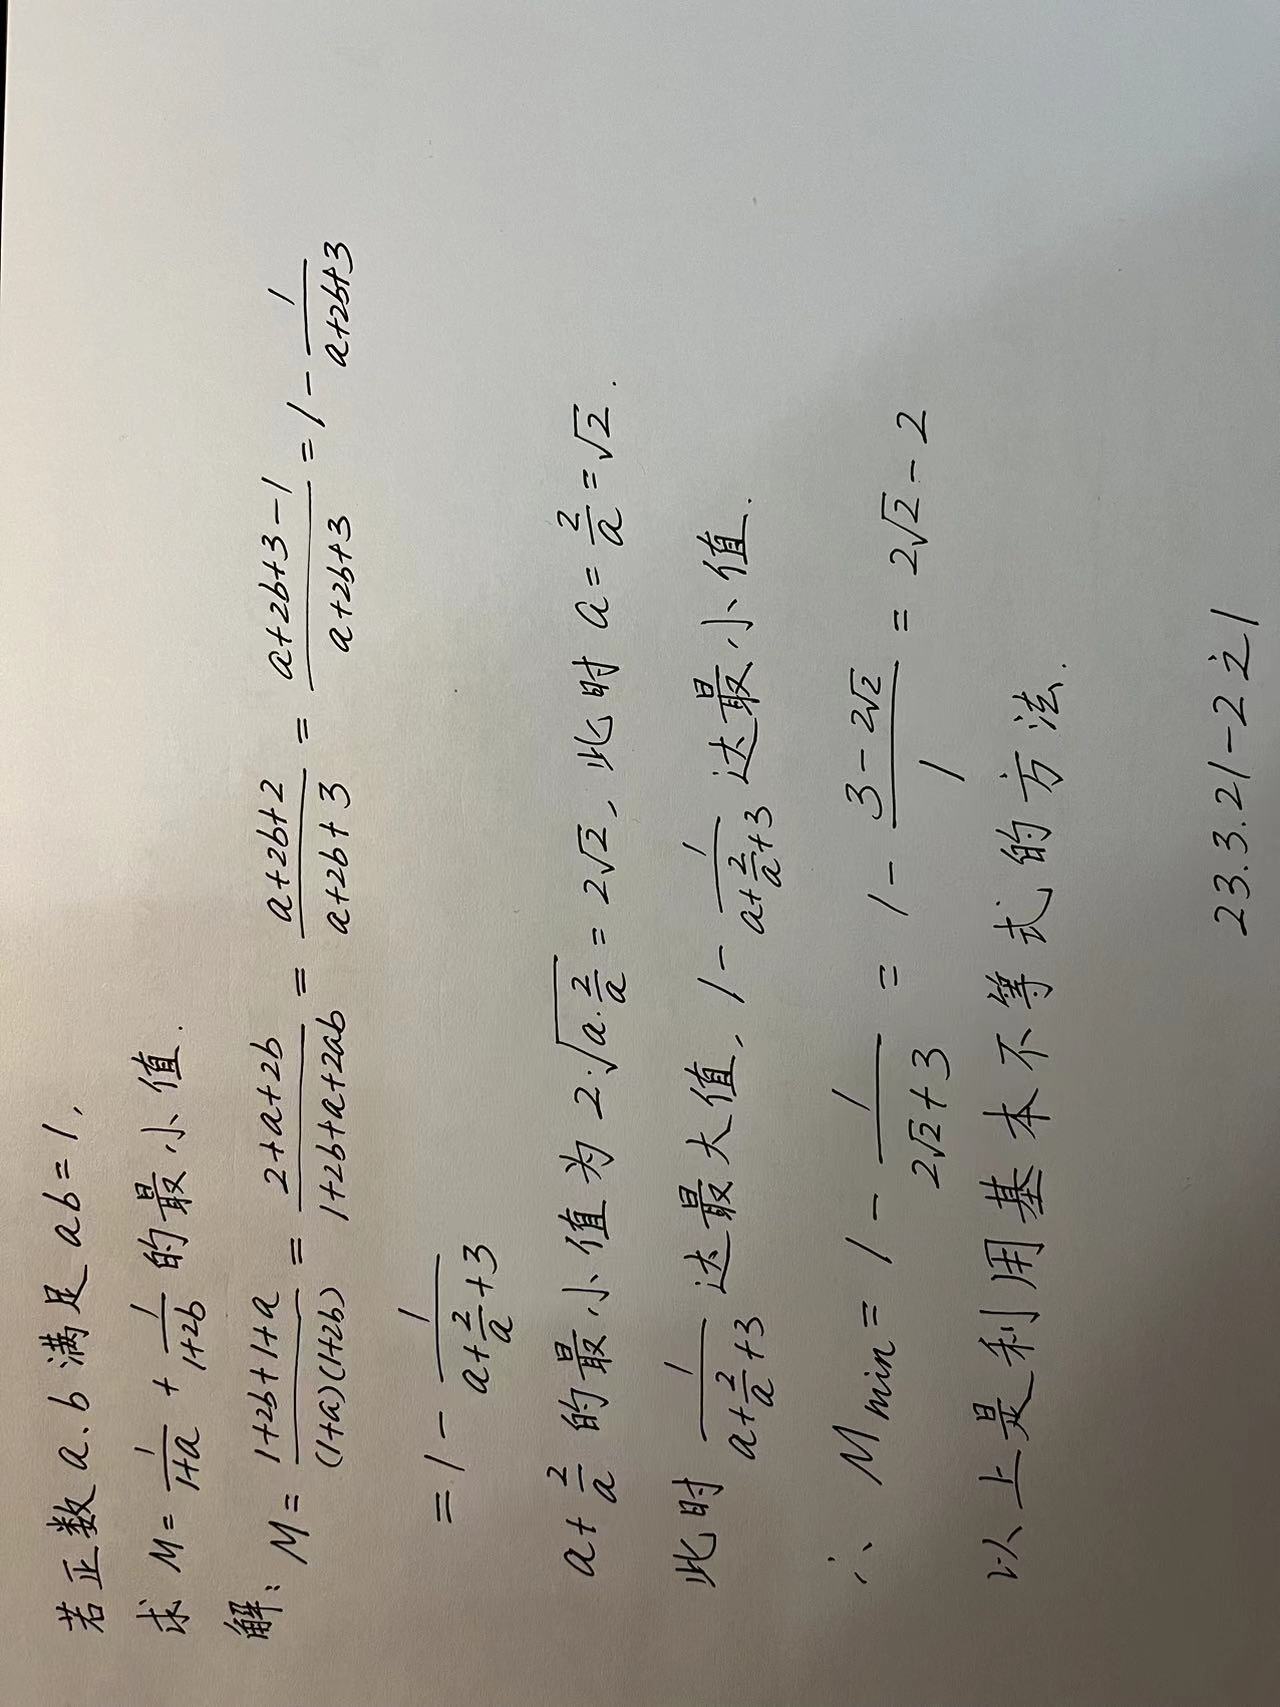 若正数 a.b 满足 ab=1,
求 M= \frac{1}{1+a} + \frac{1}{1+2b} 的最小值.
解: M= \frac{1+2b+1+a}{(1+a)(1+2b)} = \frac{2+a+2b}{1+2b+a+2ab} = \frac{a+2b+2}{a+2b+3} = \frac{a+2b+3-1}{a+2b+3} = 1- \frac{1}{a+2b+3}
= 1- \frac{1}{a+\frac{2}{a}+3}
a+ \frac{2}{a} 的最小值为 2·\sqrt{a·\frac{2}{a}} = 2√2, 此时 a= \frac{2}{a} =√2.
此时 \frac{1}{a+\frac{2}{a}+3} 达最大值, 1- \frac{1}{a+\frac{2}{a}+3} 达最小值.
∴ Mmin= 1- \frac{1}{2√2+3} = 1- \frac{3-2√2}{1} = 2√2-2
以上是利用基本不等式的方法.
23.3.21-2之1